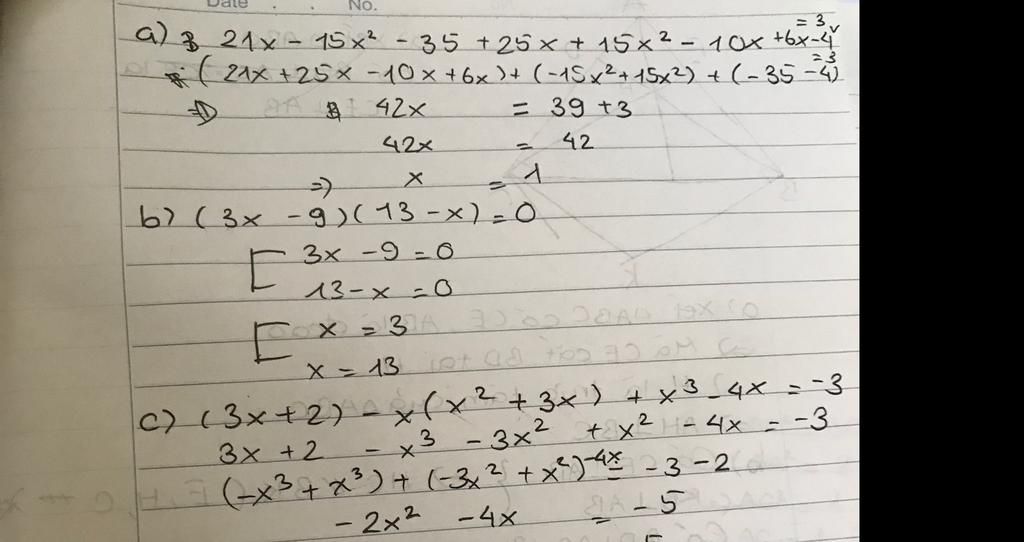 Date . . No.
a) 21x - 15x² - 35 + 25x + 15x² - 10x + 6x - 4 = 3
(21x + 25x - 10x + 6x) + (-15x² + 15x²) + (-35 - 4) = 3
=> 42x = 39 + 3
42x = 42
=> x = 1
b) (3x - 9)(13 - x) = 0
[ 3x - 9 = 0
13 - x = 0
[ x = 3
x = 13
c) (3x + 2) - x(x² + 3x) + x³ - 4x = -3
3x + 2 - x³ - 3x² + x² - 4x = -3
(-x³ + x³) + (-3x² + x²) - 4x = -3 - 2
- 2x² - 4x = - 5